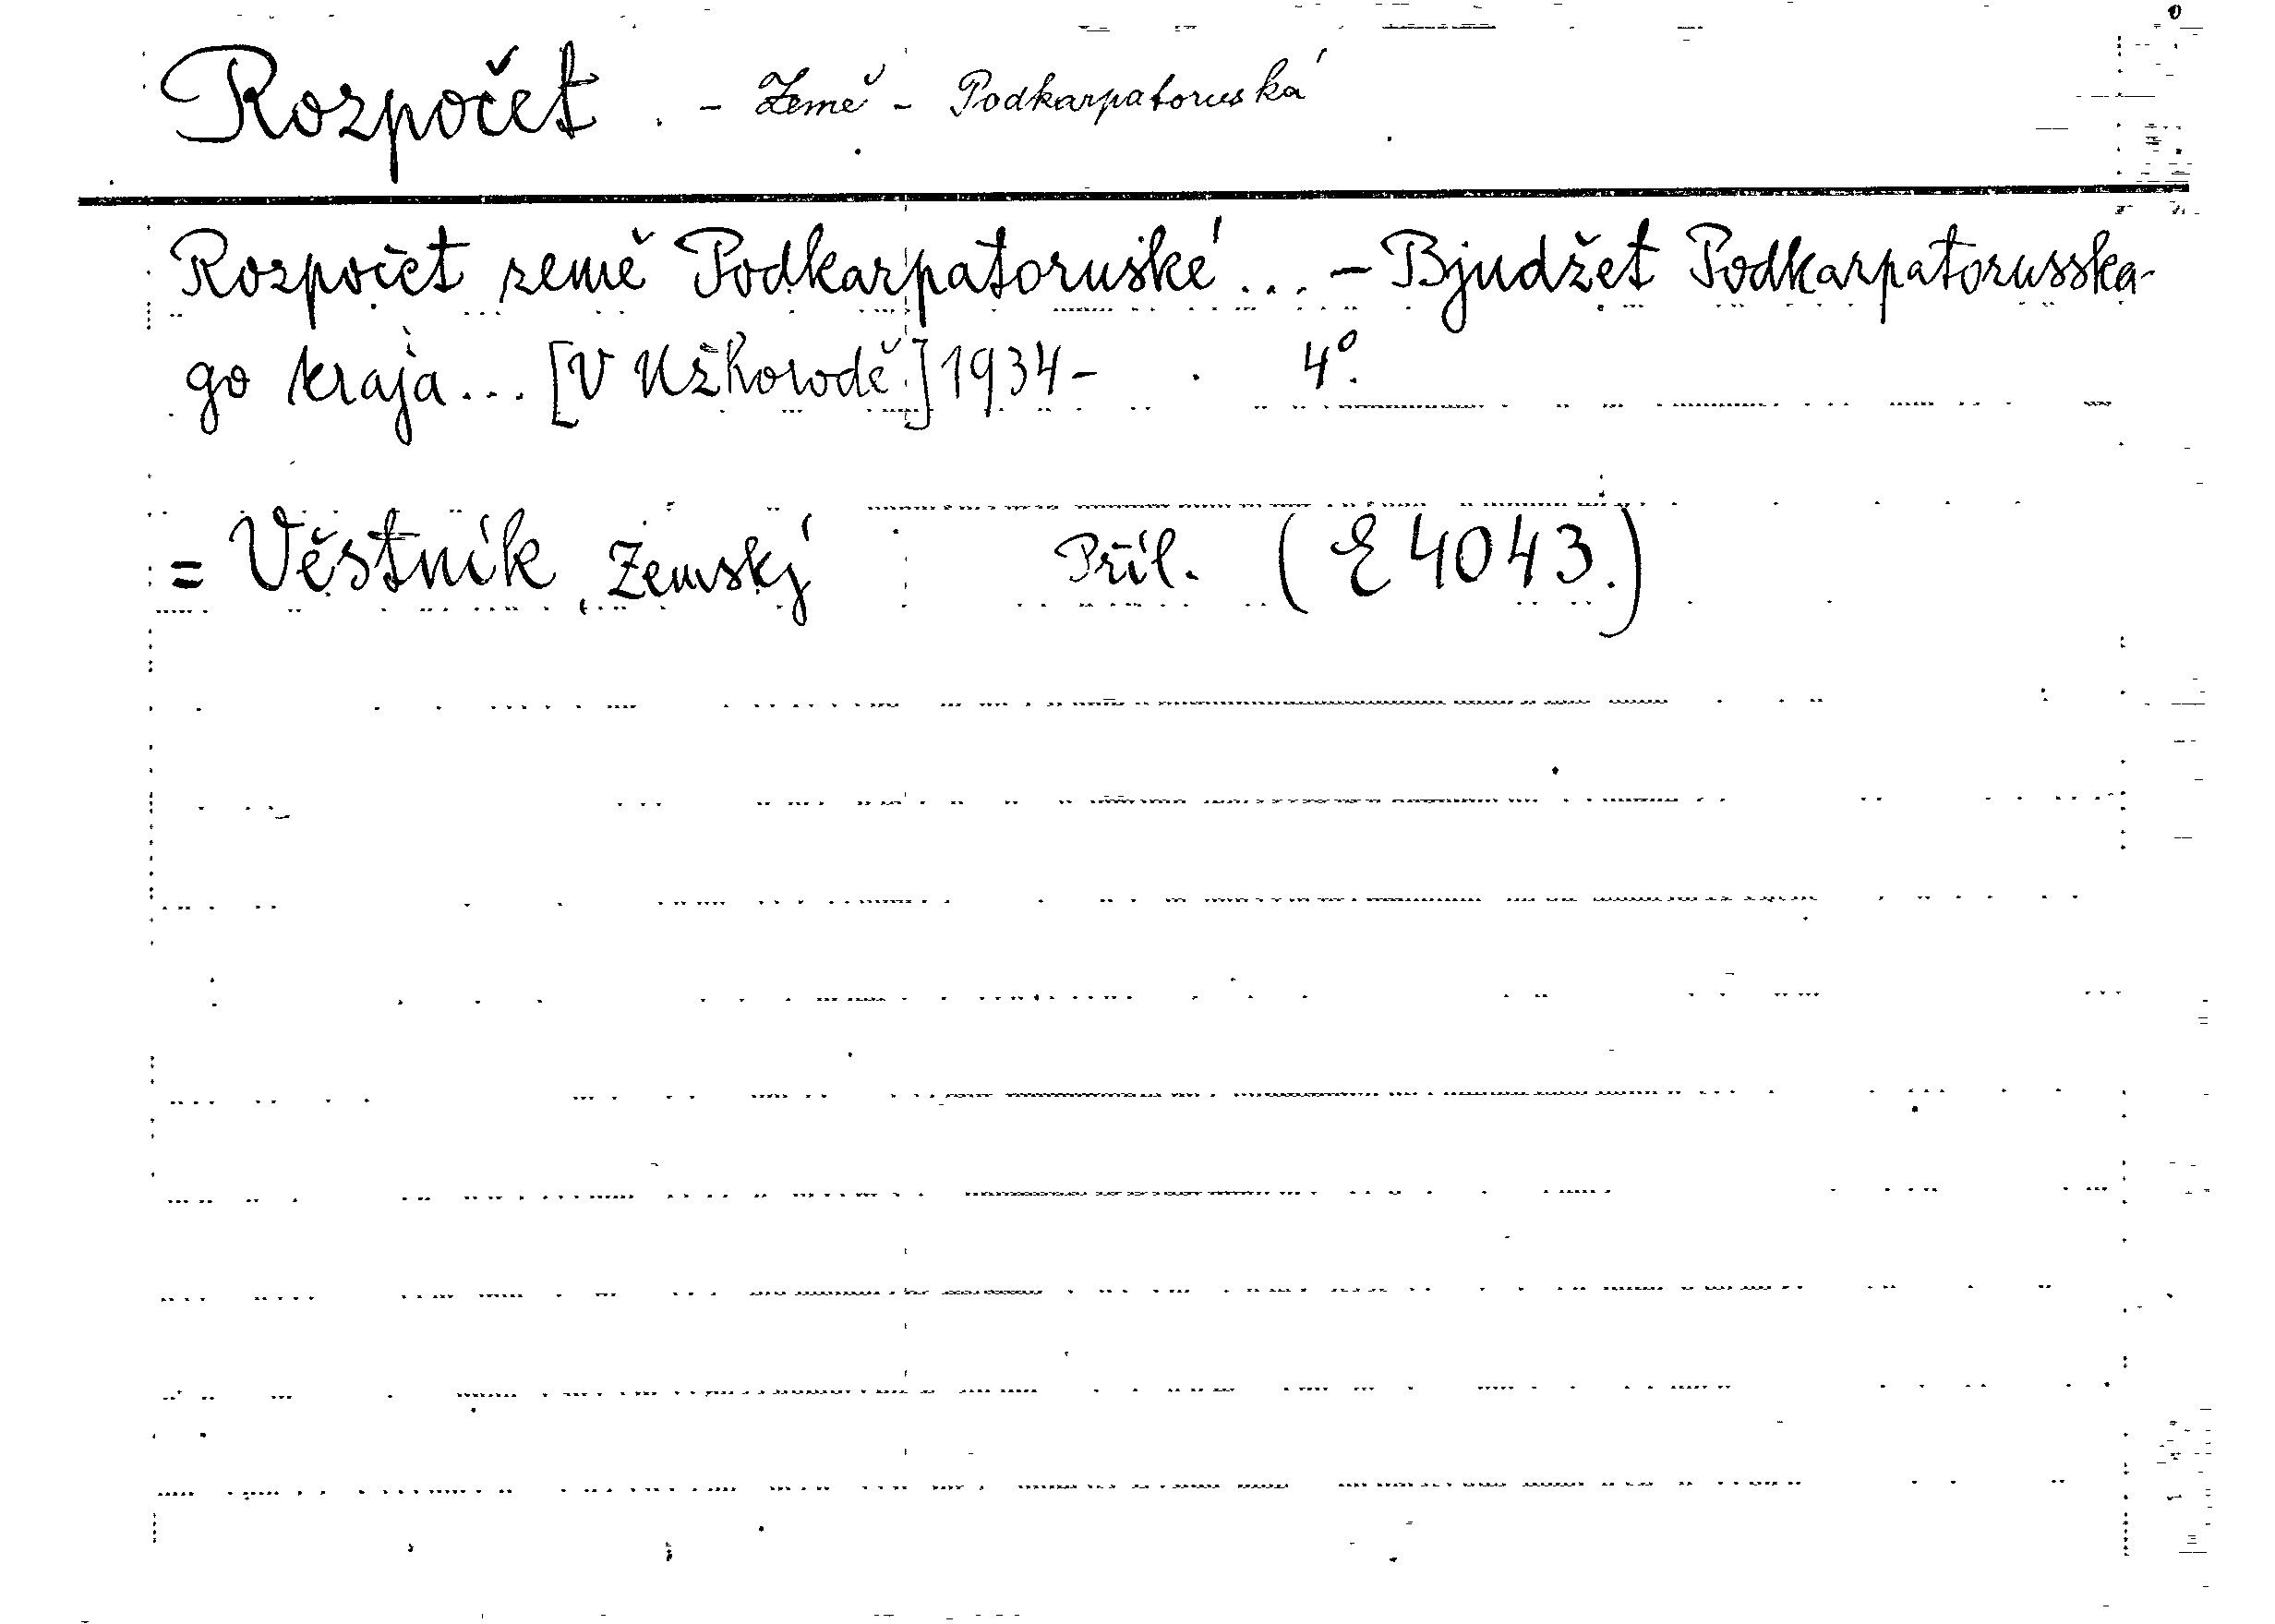 Rozpočet. - Země - Podkarpatoruská
Rozpočet země Podkarpatoruské ... - Bjudžet Podkarpatorusska-
go kraja ... [V Užhorodě] 1934- . 4°.
= Věstník Zemský Příl. (E 4043.)